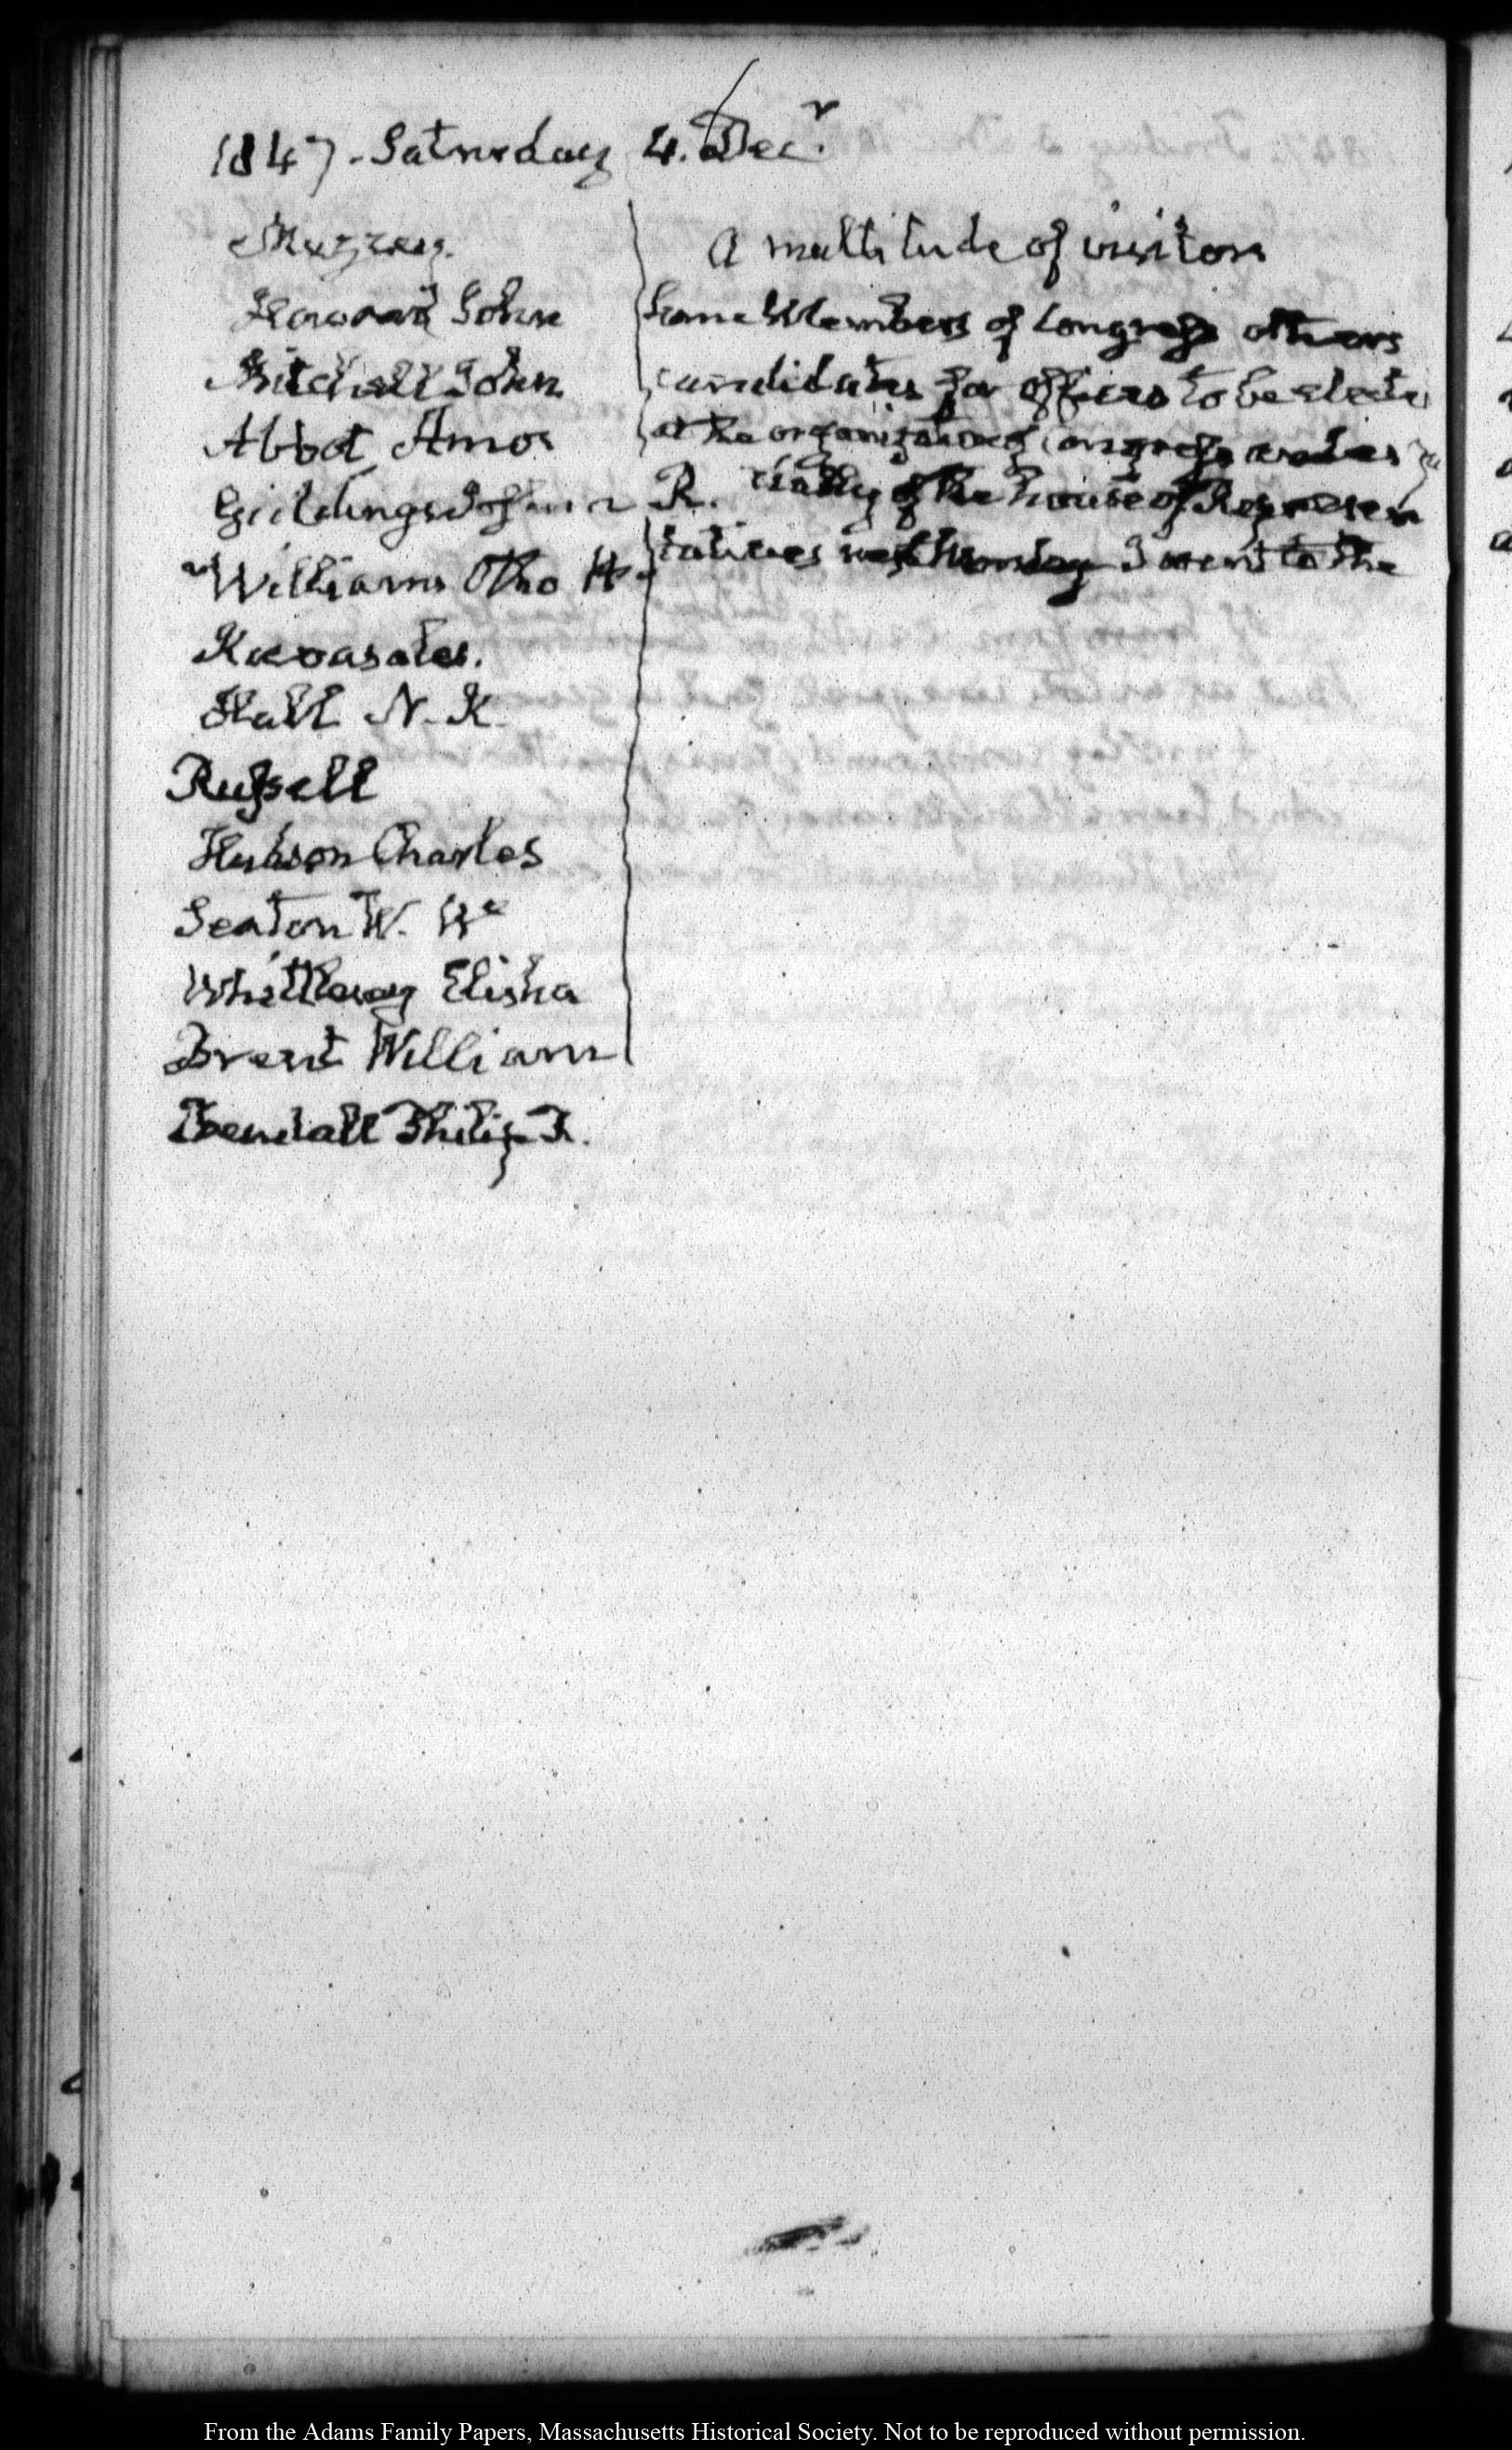 1847. Saturday 4. Decr.
Muzzey.
Howard John
Mitchell John
Abbot Amos
Giddings Joshua R.
Williams Otho H.
Hall N. K.
Russell
Hudson Charles
Seaton W. W.
Whittlesey Elisha
Brent William
Fendall Philip R.
A multitude of visitors
some Members of Congress others
candidates for offices to be elected
at the organization of Congress
cially of the house of Represen
tatives next Monday I went to the
From the Adams Family Papers, Massachusetts Historical Society. Not to be reproduced without permission.